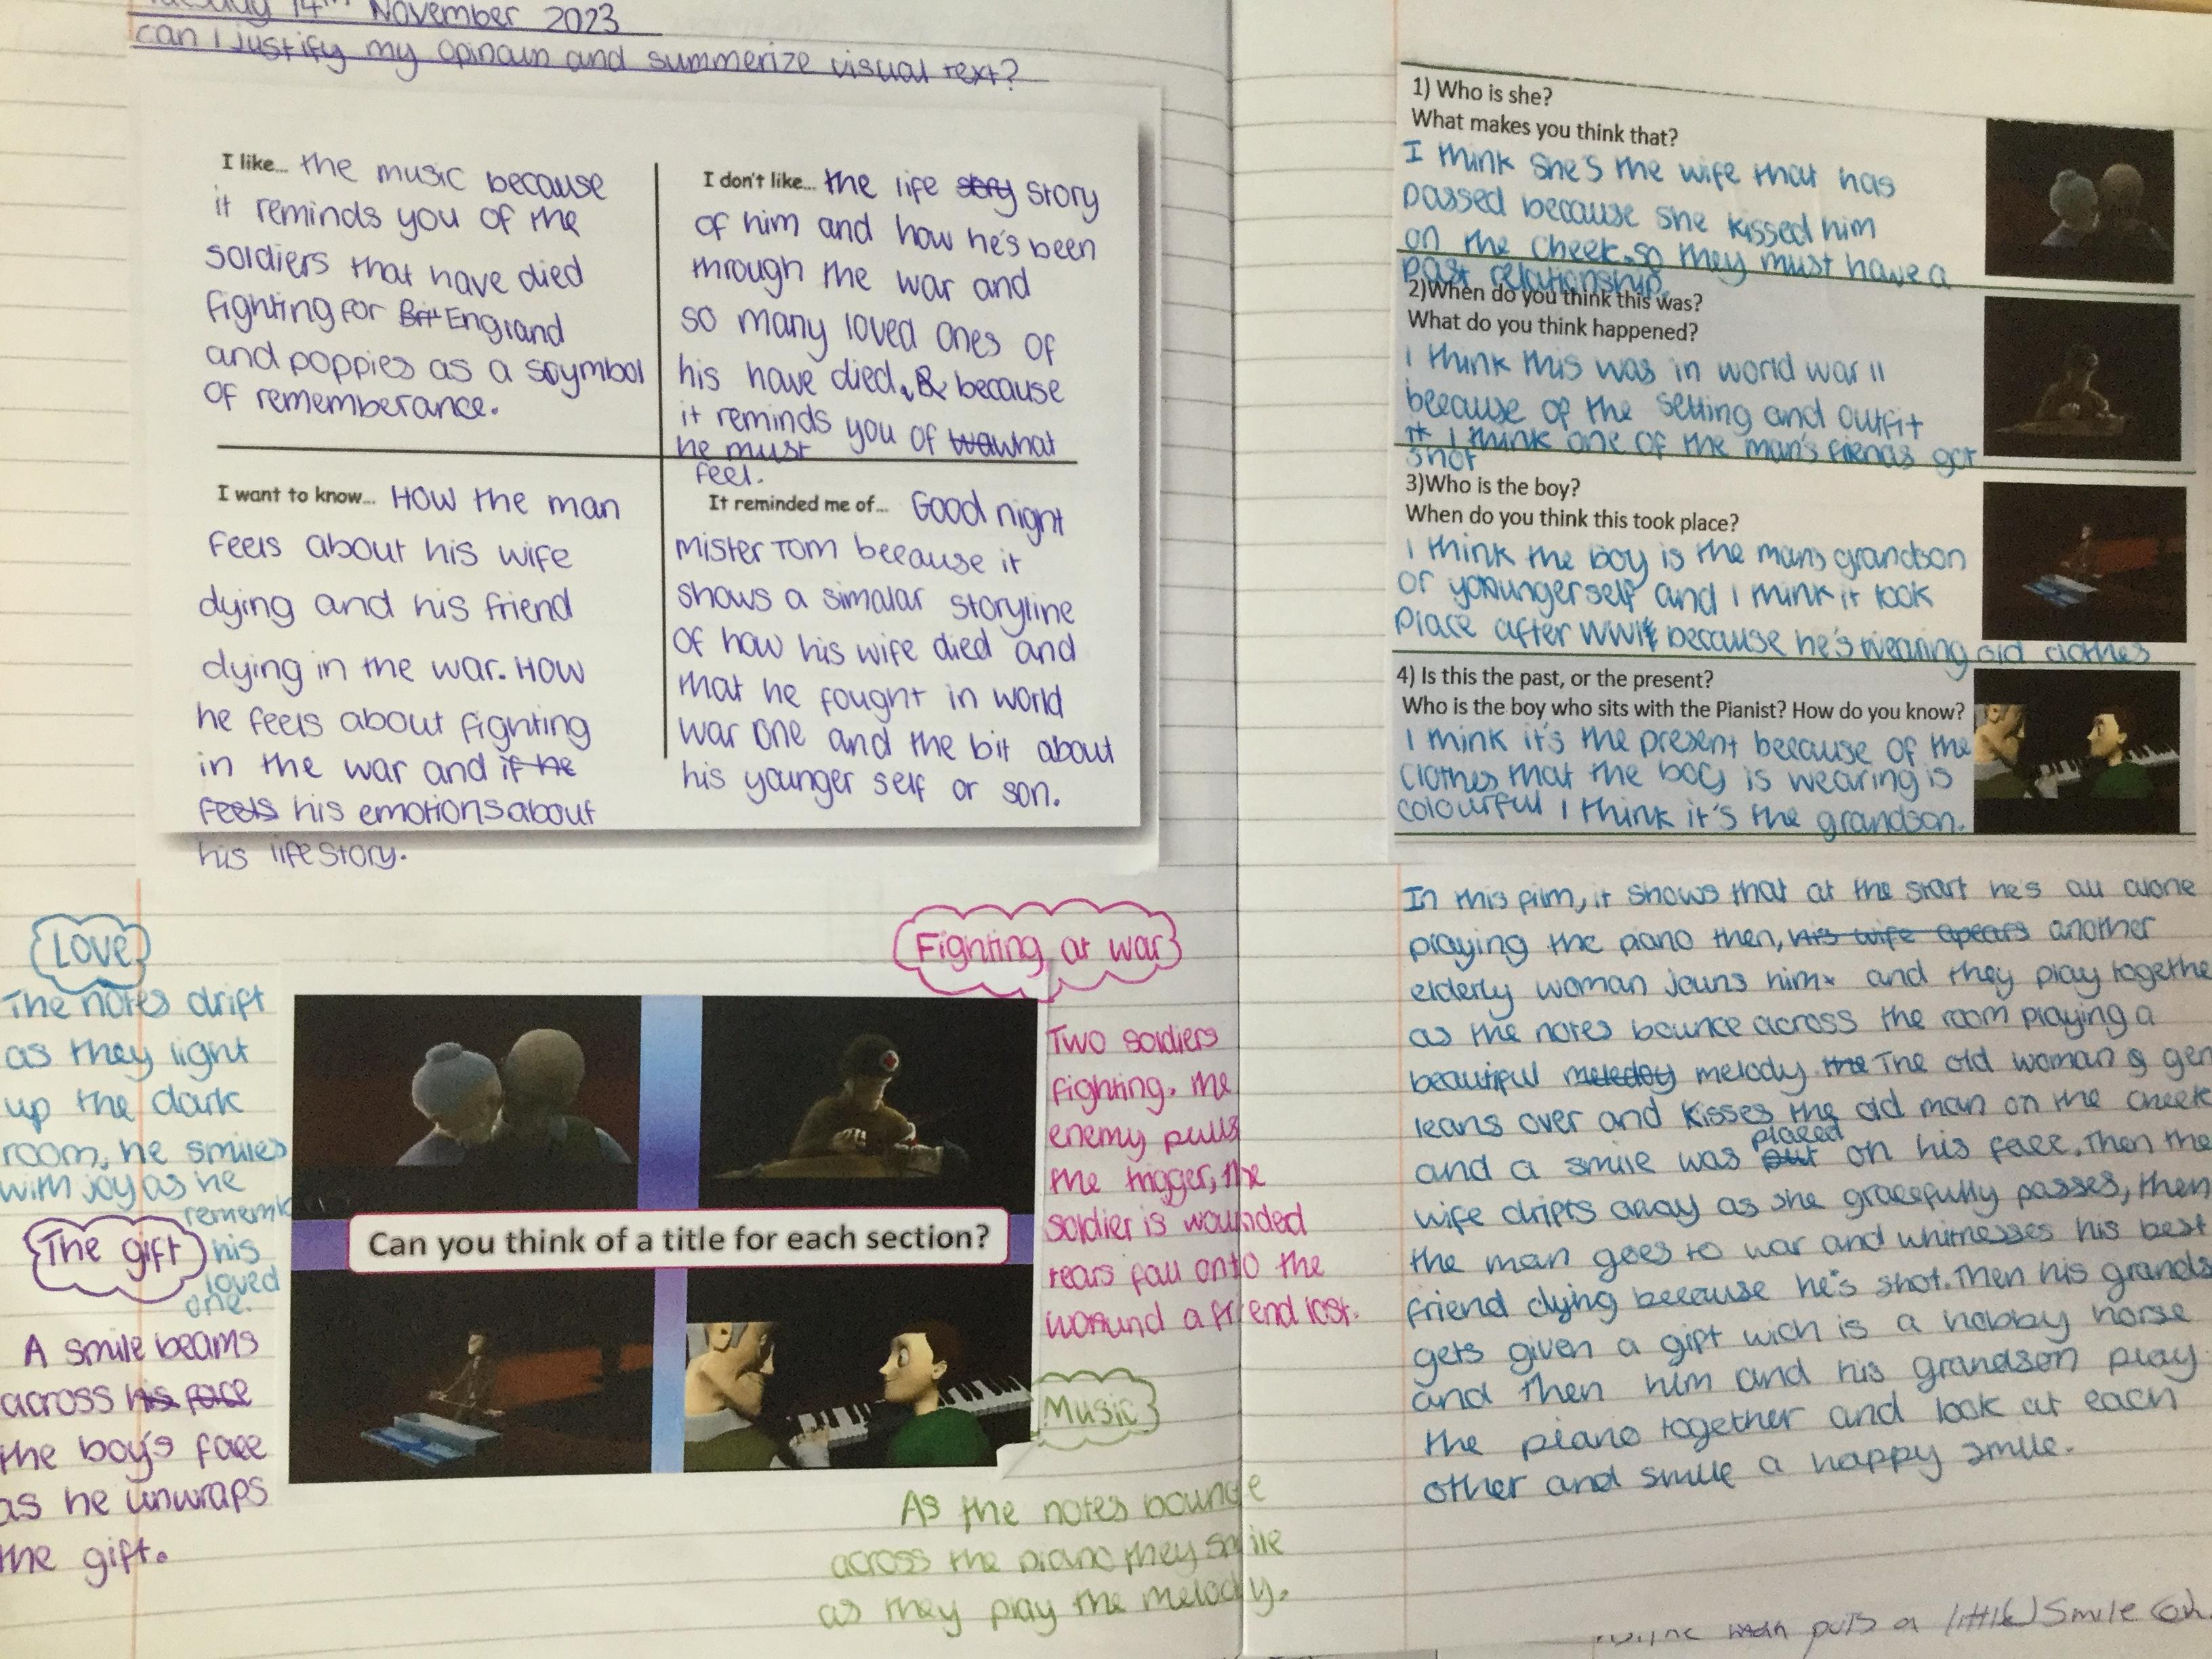 Tuesday 14th November 2023
can I justify my opinoun and summerize visual text?
I like... the music because
it reminds you of the
soldiers that have died
fighting for Brit England
and poppies as a soymbol
of rememberance.
I don't like... the life stry story
of him and how he's been
through the war and
so many loved ones of
his have died, & because
it reminds you of wa what
he must
feel.
I want to know... How the man
feels about his wife
dying and his friend
dying in the war. How
he feels about fighting
in the war and if he
feels his emotions about
his life story.
It reminded me of... Good night
mister Tom because it
shows a simalar storyline
of how his wife died and
that he fought in world
war one and the bit about
his younger self or son.
Love
The notes drift
as they light
up the dark
room, he smiles
with joy as he
rememb
his
loved
one.
The gift
A smile beams
across his face
the boy's face
as he unwraps
the gift.
Can you think of a title for each section?
Fighting at war
Two soldiers
fighting. the
enemy pulls
the trigger, the
soldier is wounded
tears fall onto the
wound a friend lost.
Music
As the notes bounce
across the piano they smile
as they play the melody.
1) Who is she?
What makes you think that?
I think she's the wife that has
passed because she kissed him
on the cheek so they must have a
past relationship.
2)When do you think this was?
What do you think happened?
I think this was in world war II
because of the setting and outfit
it I think one of the man's friends got
shot
3)Who is the boy?
When do you think this took place?
I think the boy is the mans grandson
or younger self and I think it took
place after WWII because he's wearing old clothes
4) Is this the past, or the present?
Who is the boy who sits with the Pianist? How do you know?
I think it's the present because of the
clothes that the boy is wearing is
colourful I think it's the grandson.
In this film, it shows that at the start he's all alone
playing the piano then, his wife apears another
elderly woman jouns him and they play togethe
as the notes bounce across the room playing a
beautiful meledoy melody the The old woman g gen
leans over and kisses the old man on the cheek
and a smile was put placed on his face. Then the
wife drifts away as she gracefully passes, then
the man goes to war and whitnesses his best
friend dying because he's shot. Then his grands
gets given a gift wich is a hobby horse
and then him and his grandson play
the piano together and look at each
other and smile a happy smile.
puts a little smile on